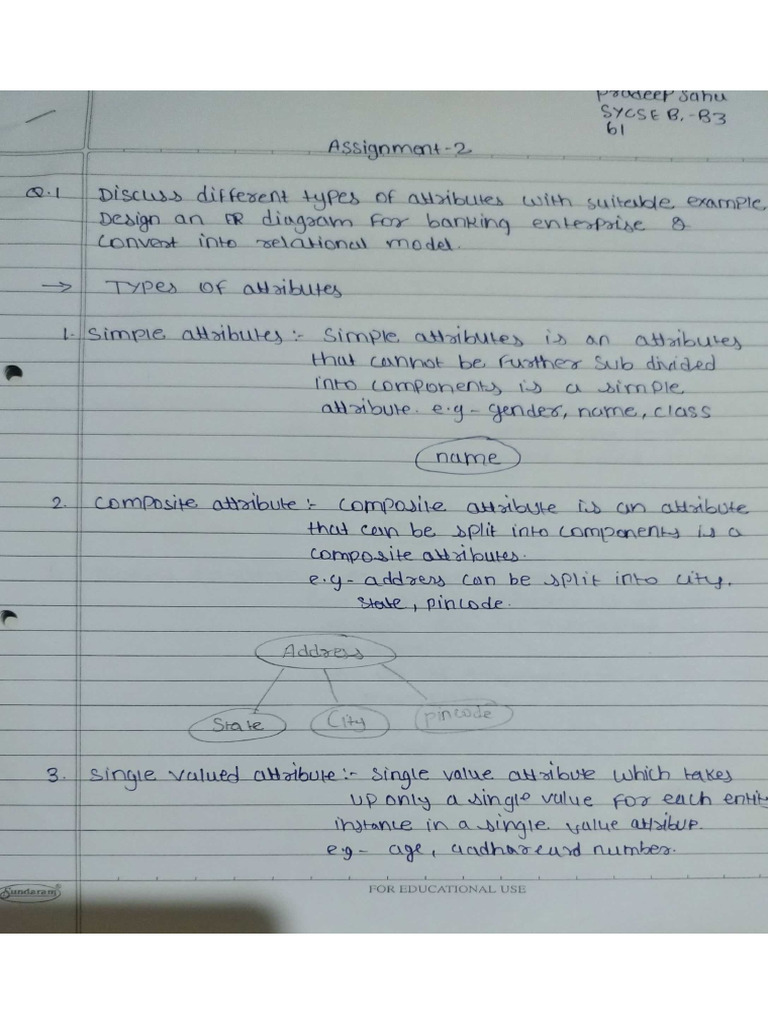 Pradeep Sahu
SYCSE B.-B3
61
Assignment-2
Q.1 Discuss different types of attributes with suitable example.
Design an ER diagram for banking enterprise &
convert into relational model.
→ Types of attributes
1. Simple attributes :- Simple attributes is an attributes
that cannot be further sub divided
into components is a simple
attribute. e.g - gender, name, class
name
2. Composite attribute :- Composite attribute is an attribute
that can be split into components is a
composite attributes.
e.g - address can be split into city,
state, pincode.
Address
State City pincode
3. Single valued attribute :- Single value attribute which takes
up only a single value for each entity
instance in a single value attribup.
e.g - age, aadharcard number.
Sundaram
FOR EDUCATIONAL USE